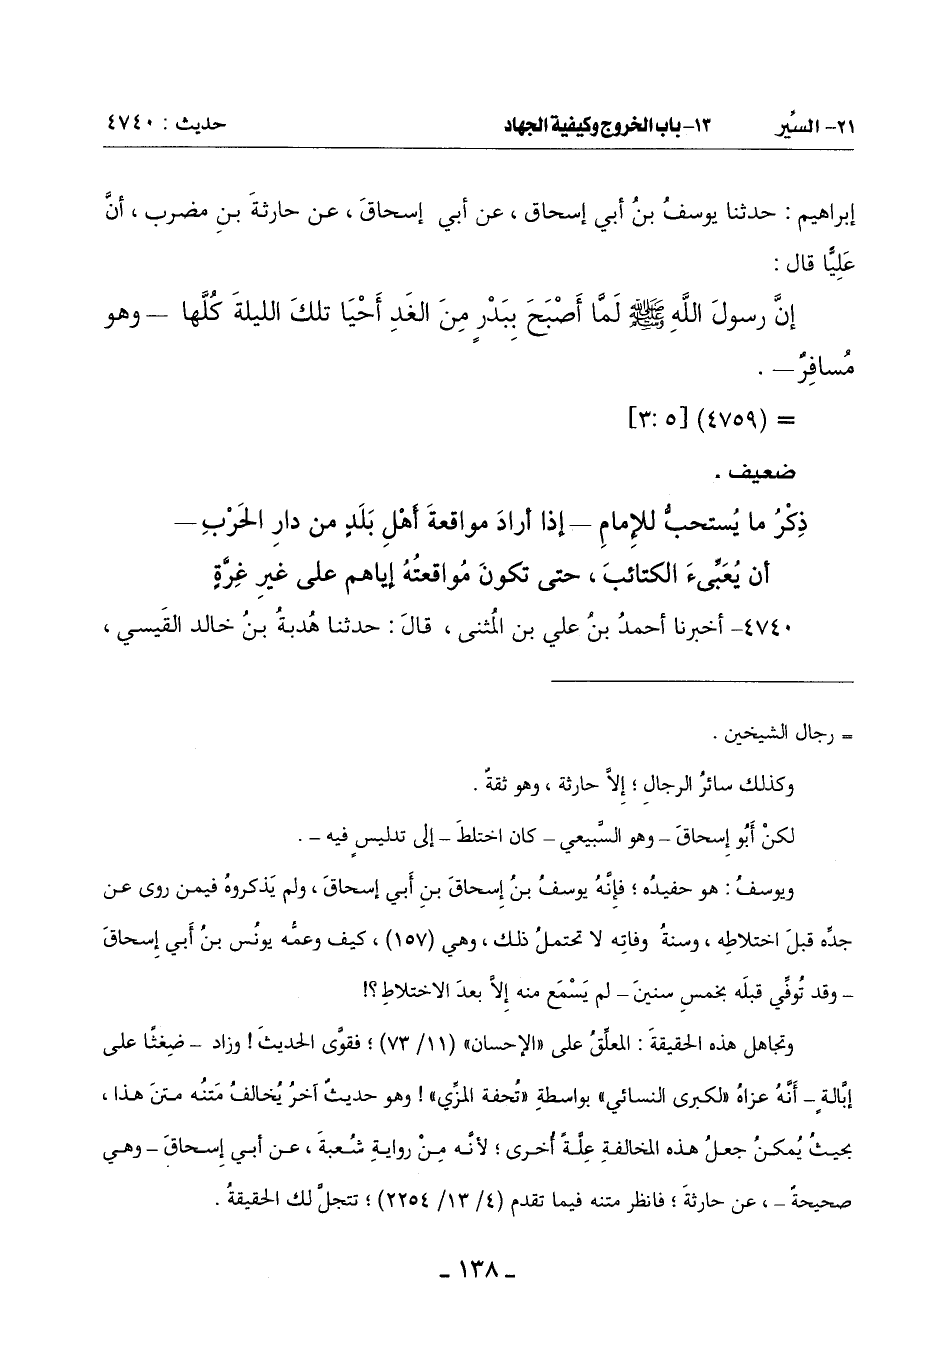 ٢١- السِّير ١٣- باب الخروج وكيفية الجهاد حديث : ٤٧٤٠
إبراهيم : حدثنا يوسفُ بنُ أبي إسحاق ، عن أبي إسحاقَ ، عن حارثةَ بنِ مضرب ، أنَّ
عَلِيًّا قال :
إنَّ رسولَ اللَّهِ ﷺ لَمَّا أَصْبَحَ بِبَدْرٍ مِنَ الغَدِ أَحْيَا تلكَ الليلةَ كُلَّها — وهو
مُسافِرٌ — .
= (٤٧٥٩) [٥ :٣]
ضعيف .
ذِكْرُ ما يُستحبُّ للإمامِ — إذا أرادَ مواقعةَ أَهْلِ بَلَدٍ من دارِ الحَرْبِ —
أن يُعَبِّىءَ الكتائبَ ، حتى تكونَ مُواقعتُهُ إياهم على غيرِ غِرَّةٍ
٤٧٤٠- أخبرنا أحمدُ بنُ علي بن المُثنى ، قالَ : حدثنا هُدبةُ بنُ خالد القَيسي ،
= رجال الشيخين .
وكذلك سائرُ الرجالِ ؛ إِلاَّ حارثة ، وهو ثقةٌ .
لكنْ أَبُو إسحاقَ – وهو السَّبيعي – كان اختلطَ – إلى تدليسٍ فيه – .
ويوسفُ : هو حفيدُه ؛ فإنَّهُ يوسفُ بنُ إسحاقَ بنِ أبي إسحاقَ ، ولم يَذكروهُ فيمن روى عن
جدِّه قبلَ اختلاطِه ، وسنةُ وفاتِه لا تحتملُ ذلك ، وهي (١٥٧) ، كيف وعمُّه يونُس بنُ أَبي إِسحاقَ
– وقد تُوفِّي قبلَه بخمسِ سنينَ – لم يَسْمَع منه إلاَّ بعدَ الاختلاطِ ؟!
وتجاهل هذه الحقيقةَ : المعلِّقُ على «الإحسان» (١١/ ٧٣) ؛ فقوَّى الحديثَ ! وزاد – ضِغثًا على
إبَّالةٍ – أنَّهُ عزاهُ «لكبرى النسائي» بواسطةِ «تُحفة المزِّي» ! وهو حديثٌ آخرُ يُخالفُ مَتنُه متنَ هذا ،
بحيثُ يُمكنُ جعلُ هذه المخالفةِ عِلَّةً أُخرى ؛ لأنَّه مِنْ روايةِ شُعبةَ ، عن أبي إسحاقَ – وهي
صحيحةٌ – ، عن حارثةَ ؛ فانظر متنه فيما تقدم (٤/ ١٣/ ٢٢٥٤) ؛ تتجلَّ لك الحقيقةُ .
– ١٣٨ –